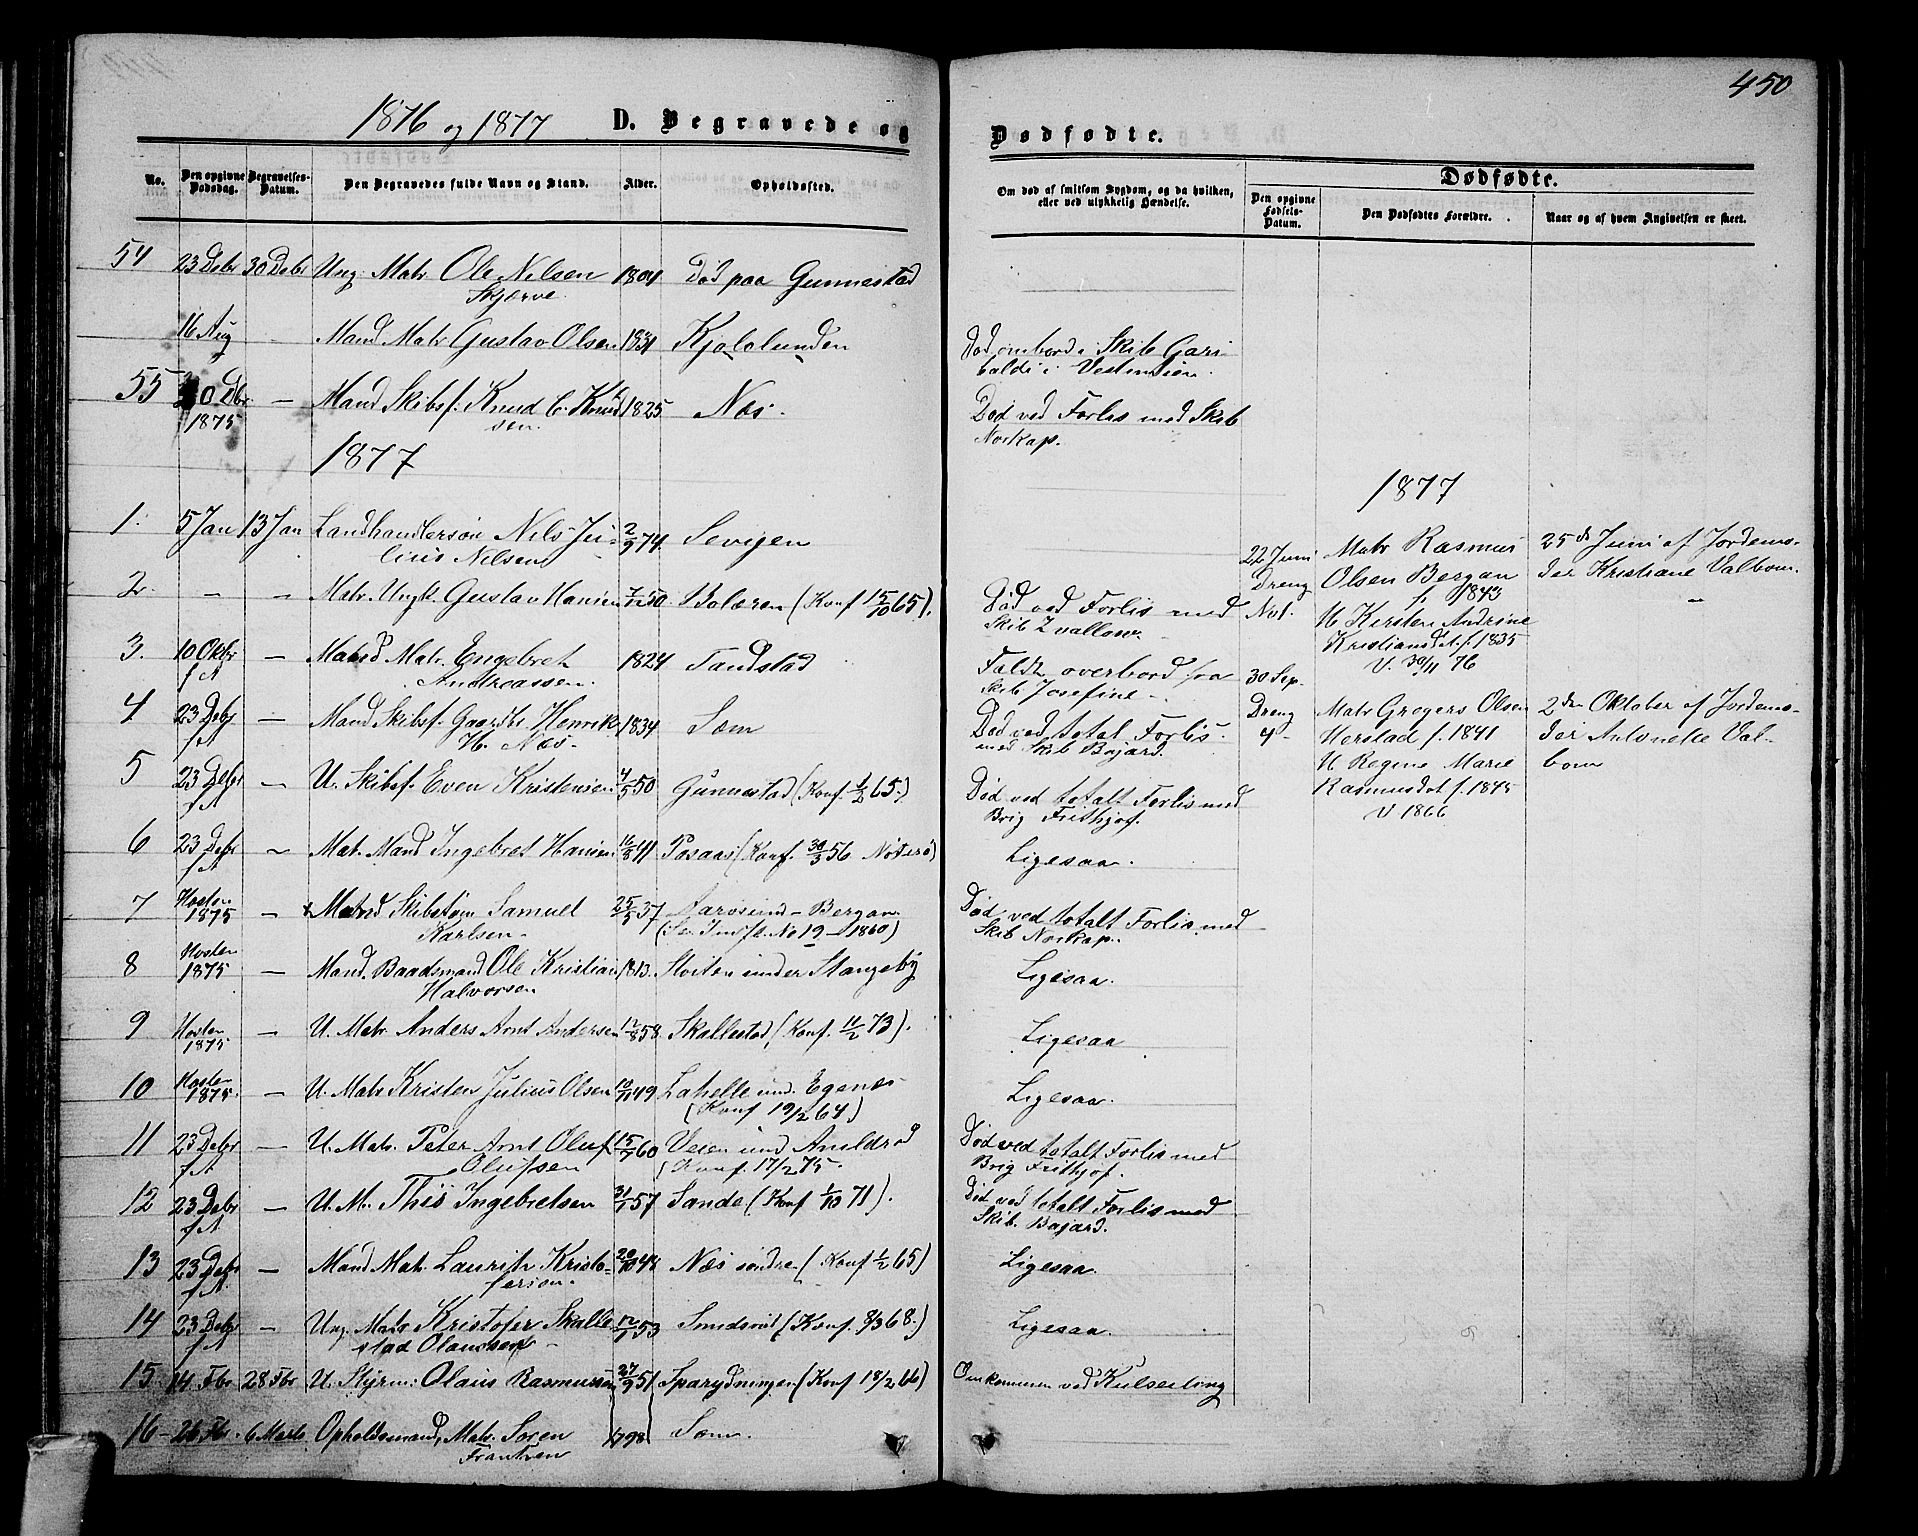 450
1876 og 1877 D. Begravede og Dødfødte.
No. Den opgivne Dødsdag. Begravelses-Datum. Den Begravedes fulde Navn og Stand. Alder. Opholdssted.
Om død af smitsom Sygdom, og da hvilken, eller ved ulykkelig Hændelse.
Dødfødte.
Den opgivne Fødsels-Datum. Den Dødfødtes Forældre. Naar og af hvem Angivelsen er skeet.
54 23 Debr 30 Debr Ung. Matr Ole Nilsen 1804 Død paa Gunnestad
Skjerve.
16 Aug Mand Matr Gustav Olsen 1831 Kjololunden Død ombord i Skib Gari
baldi i Vestindien.
55 20 Dbr — Mand Skibsf. Knud C. Knud 1825 Næs. Død ved Forlis med Skib
1875 sen. Norkap.
1877
1. 5 Jan 13 Jan Landhandlersøn Nils Ju 2/9 74. Sevigen
lius Nilsen
2. - - Matr. Ungk. Gustav Hansen 7/12 50 Bolæren (Konf 15/10 65). Død ved Forlis med
Skib Zvallow.
3. 10 Oktbr — Mand Matr. Engebret 1824 Tandstad Faldt overbord fra
f A Andreassen. Skib Josefine -
4 23 Debr — Mand Skibsf. Gaardbr Henrik 1834 Sem Død ved total Forlis
f A H. Næs. med Skib Bajard.
5 23 Debr — U. Skibsf. Even Kristensen 4/5 50 Gunnestad (Konf. 1/2 65.) Død ved totalt Forlis med
f A Brig Frithjof.
6 23 Debr ~ Mat. Mand Ingebret Hansen 16/8 41 Posaas (Konf. 30/3 56 Nøterø) Ligesaa.
f A
7 Høsten — Mand Skibstøm Samuel 25/5 37 Aarøsund - Bergan Død ved totalt Forlis med
1875 Karlsen. No 19 - 1860) Skib Norkap.
8 Høsten
1875 — Mand. Baadsmand Ole Kristian 1813. Hviten under Stangeby Ligesaa.
Halvorsen
9 Høsten — U. Matr. Anders Arnt Andersen 12/8 58. Skallestad, (Konf. 11/2 73). Ligesaa
1875
10 Høsten — U. Matr Kristen Julius Olsen 49 Lahelle und. Egenes Ligesaa.
1875. (Konf 19/2 64)
11 23 Debr — U. Matr. Peter Arnt Oluf 15/7 60 Veien und Arildrød Død ved totalt Forlis med
f A Olufsen (Konf. 17/2 75. Brig Frithjof.
12 23 Debr — U. M. This Ingebretsen 31/7 57 Sande (Konf 1/10 71). Død ved totalt Forlis med
f A Skib. Bajard.
13 23 Debr — Mand Matr. Laurits Kristo- 20/10 48 Næs søndre (Konf 1/2 65) Ligesaa.
f A ferson.
14 23 Debr — Ung. Matr Kristofer Skalle 12/7 53 Smidsrød (Konf. 8/3 68.) Ligesaa.
f A stad Olaussen
15. 14 Fbr 28 Fbr U. Styrm: Olaus Rasmussen 27/9 51 Sparydningen (Konf 18/2 66) Omkommen ved Kulseiling
16 - 26 Fbr. 6 Marts Opholdsmand, Matr. Søren 1798 Sem.
Frantzen
1877
22 Juni Matr Rasmus 25de Juni af Jordemo-
Dreng Olsen Bergan der Kristiane Valbom.
f. 1843
Nøt. U Kirsten Andrine
Kristiansdt. f. 1835
V. 30/11 76
30 Sep.
Dreng Matr Gregers Olsen 2den Oktober af Jordemo-
4 - Herstad f. 1841 der Antonette Val-
U Regine Marie bom
Rasmusdat f. 1845
V 1866